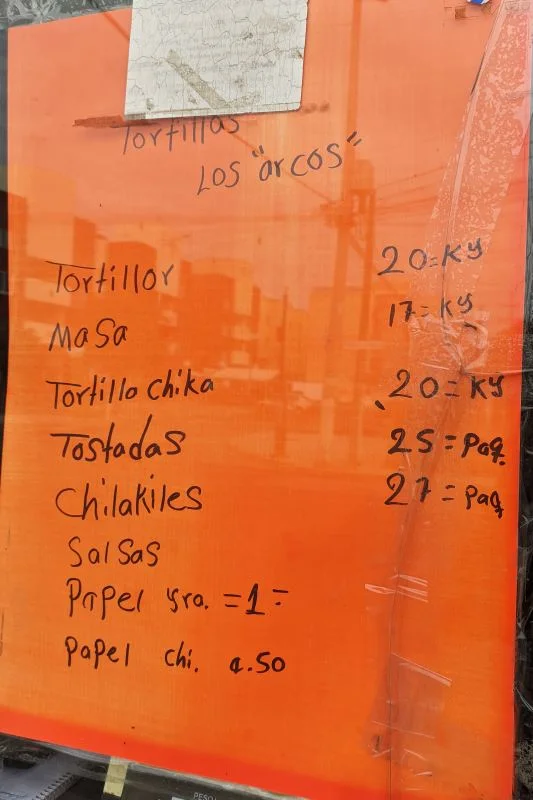 Tortillas
Los "arcos"
Tortillor 20=Ky
Masa 17=Ky
Tortillo chika 20=Ky
Tostadas 25=Paq.
Chilakiles 27=Paq
Salsas
Papel gra. =1=
Papel chi. a.50